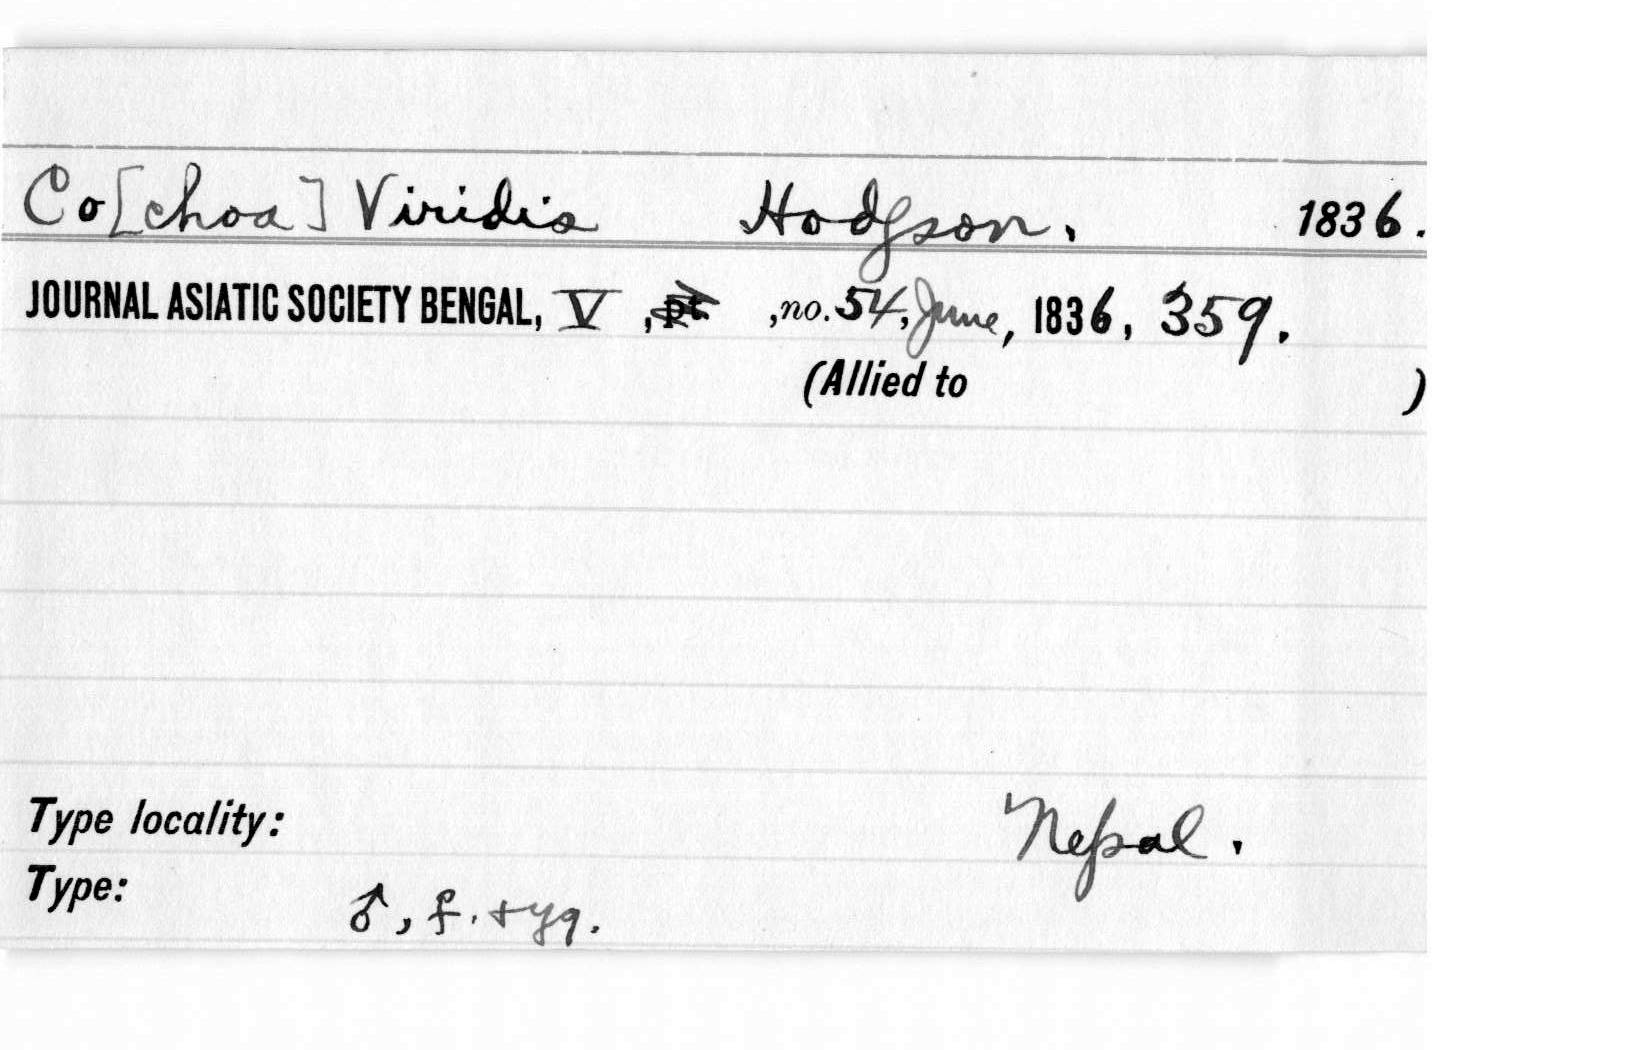 Co[choa] Viridis Hodgson. 1836.
JOURNAL ASIATIC SOCIETY BENGAL, V , pt ,no.54, June, 1836, 359.
(Allied to )
Type locality: Nepal.
Type: ♂, ♀. + yg.